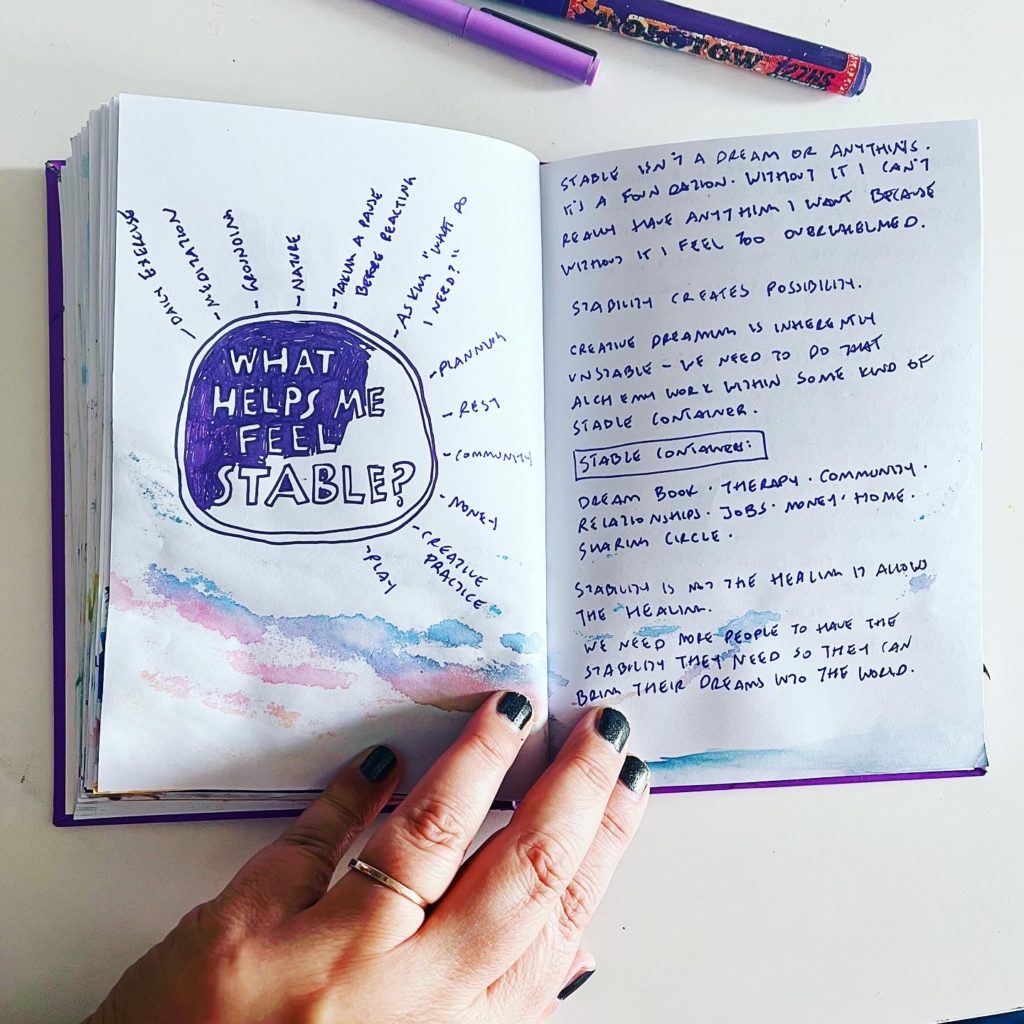 MOLOTOW 127HS
DAILY EXERCISE
- MEDITATION
- GROUNDING
- NATURE
- TAKING A PAUSE
BEFORE REACTING
- ASKING "WHAT DO
I NEED?"
- PLANNING
- REST
- COMMUNITY
- MONEY
- CREATIVE
PRACTICE
- PLAY
WHAT
HELPS ME
FEEL
STABLE?
STABLE ISN'T A DREAM OR ANYTHING.
IT'S A FOUNDATION. WITHOUT IT I CAN'T
REALLY HAVE ANYTHING I WANT BECAUSE
WITHOUT IT I FEEL TOO OVERWHELMED.
STABILITY CREATES POSSIBILITY.
CREATIVE DREAMING IS INHERENTLY
UNSTABLE - WE NEED TO DO THAT
ALCHEMY WORK WITHIN SOME KIND OF
STABLE CONTAINER.
STABLE CONTAINERS:
DREAM BOOK · THERAPY · COMMUNITY ·
RELATIONSHIPS · JOBS · MONEY · HOME ·
SHARING CIRCLE ·
STABILITY IS NOT THE HEALING IT ALLOW
THE HEALING.
WE NEED MORE PEOPLE TO HAVE THE
STABILITY THEY NEED SO THEY CAN
BRING THEIR DREAMS INTO THE WORLD.